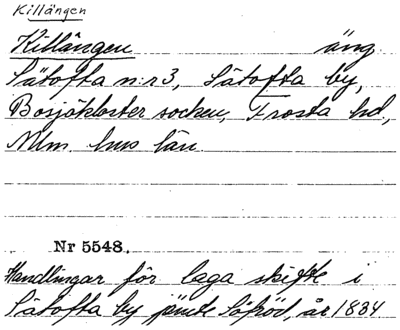 Killängen
Killängen äng.
Sätofta n:r 3, Sätofta by,
Bosjökloster socken, Frosta hd,
Mlm. hus län.
Nr 5548.
Handlingar för laga skifte i
Sätofta by jämte Söfröd, år 1834